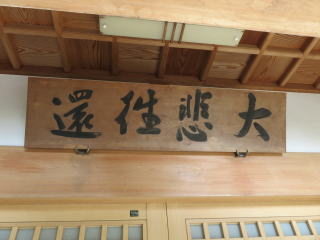 大悲往還